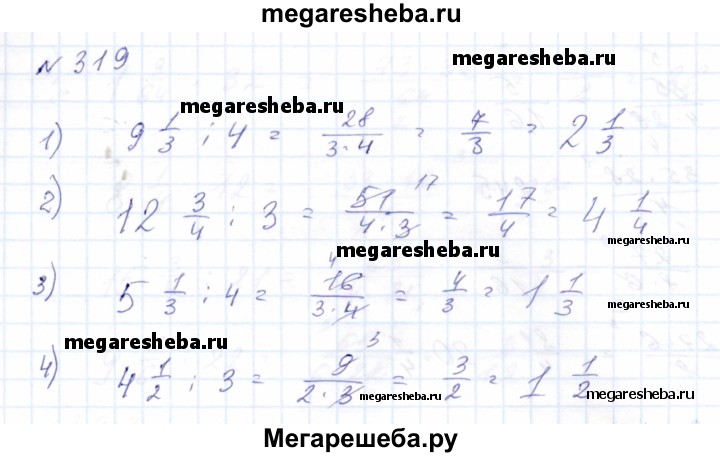 megaresheba.ru
№ 319
megaresheba.ru
megaresheba.ru
1) 9 1/3 : 4 = 28/(3·4) = 7/3 = 2 1/3
2) 12 3/4 : 3 = 51 17/(4·3) = 17/4 = 4 1/4
megaresheba.ru
megaresheba.ru
3) 5 1/3 : 4 = 4 16/(3·4) = 4/3 = 1 1/3
megaresheba.ru
megaresheba.ru
4) 4 1/2 : 3 = 9 3/(2·3) = 3/2 = 1 1/2
megaresheba.ru
megaresheba.ru
Мегарешеба.ру